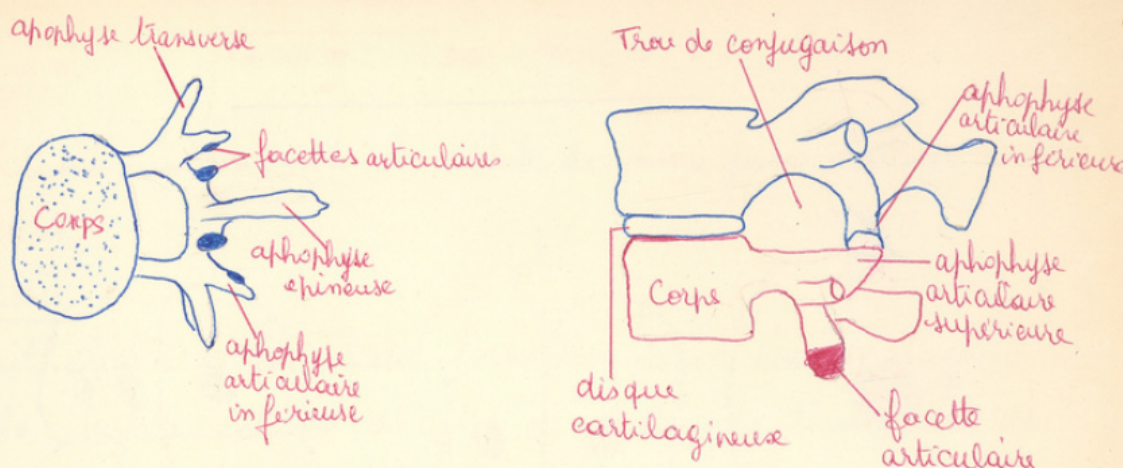 apophyse transverse
facettes articulaires
Corps
aphophyse
épineuse
aphophyse
articulaire
inférieuse
Trou de conjugaison
aphophyse
articulaire
inférieuse
Corps
aphophyse
articulaire
supérieure
disque
cartilagineuse
facette
articulaire